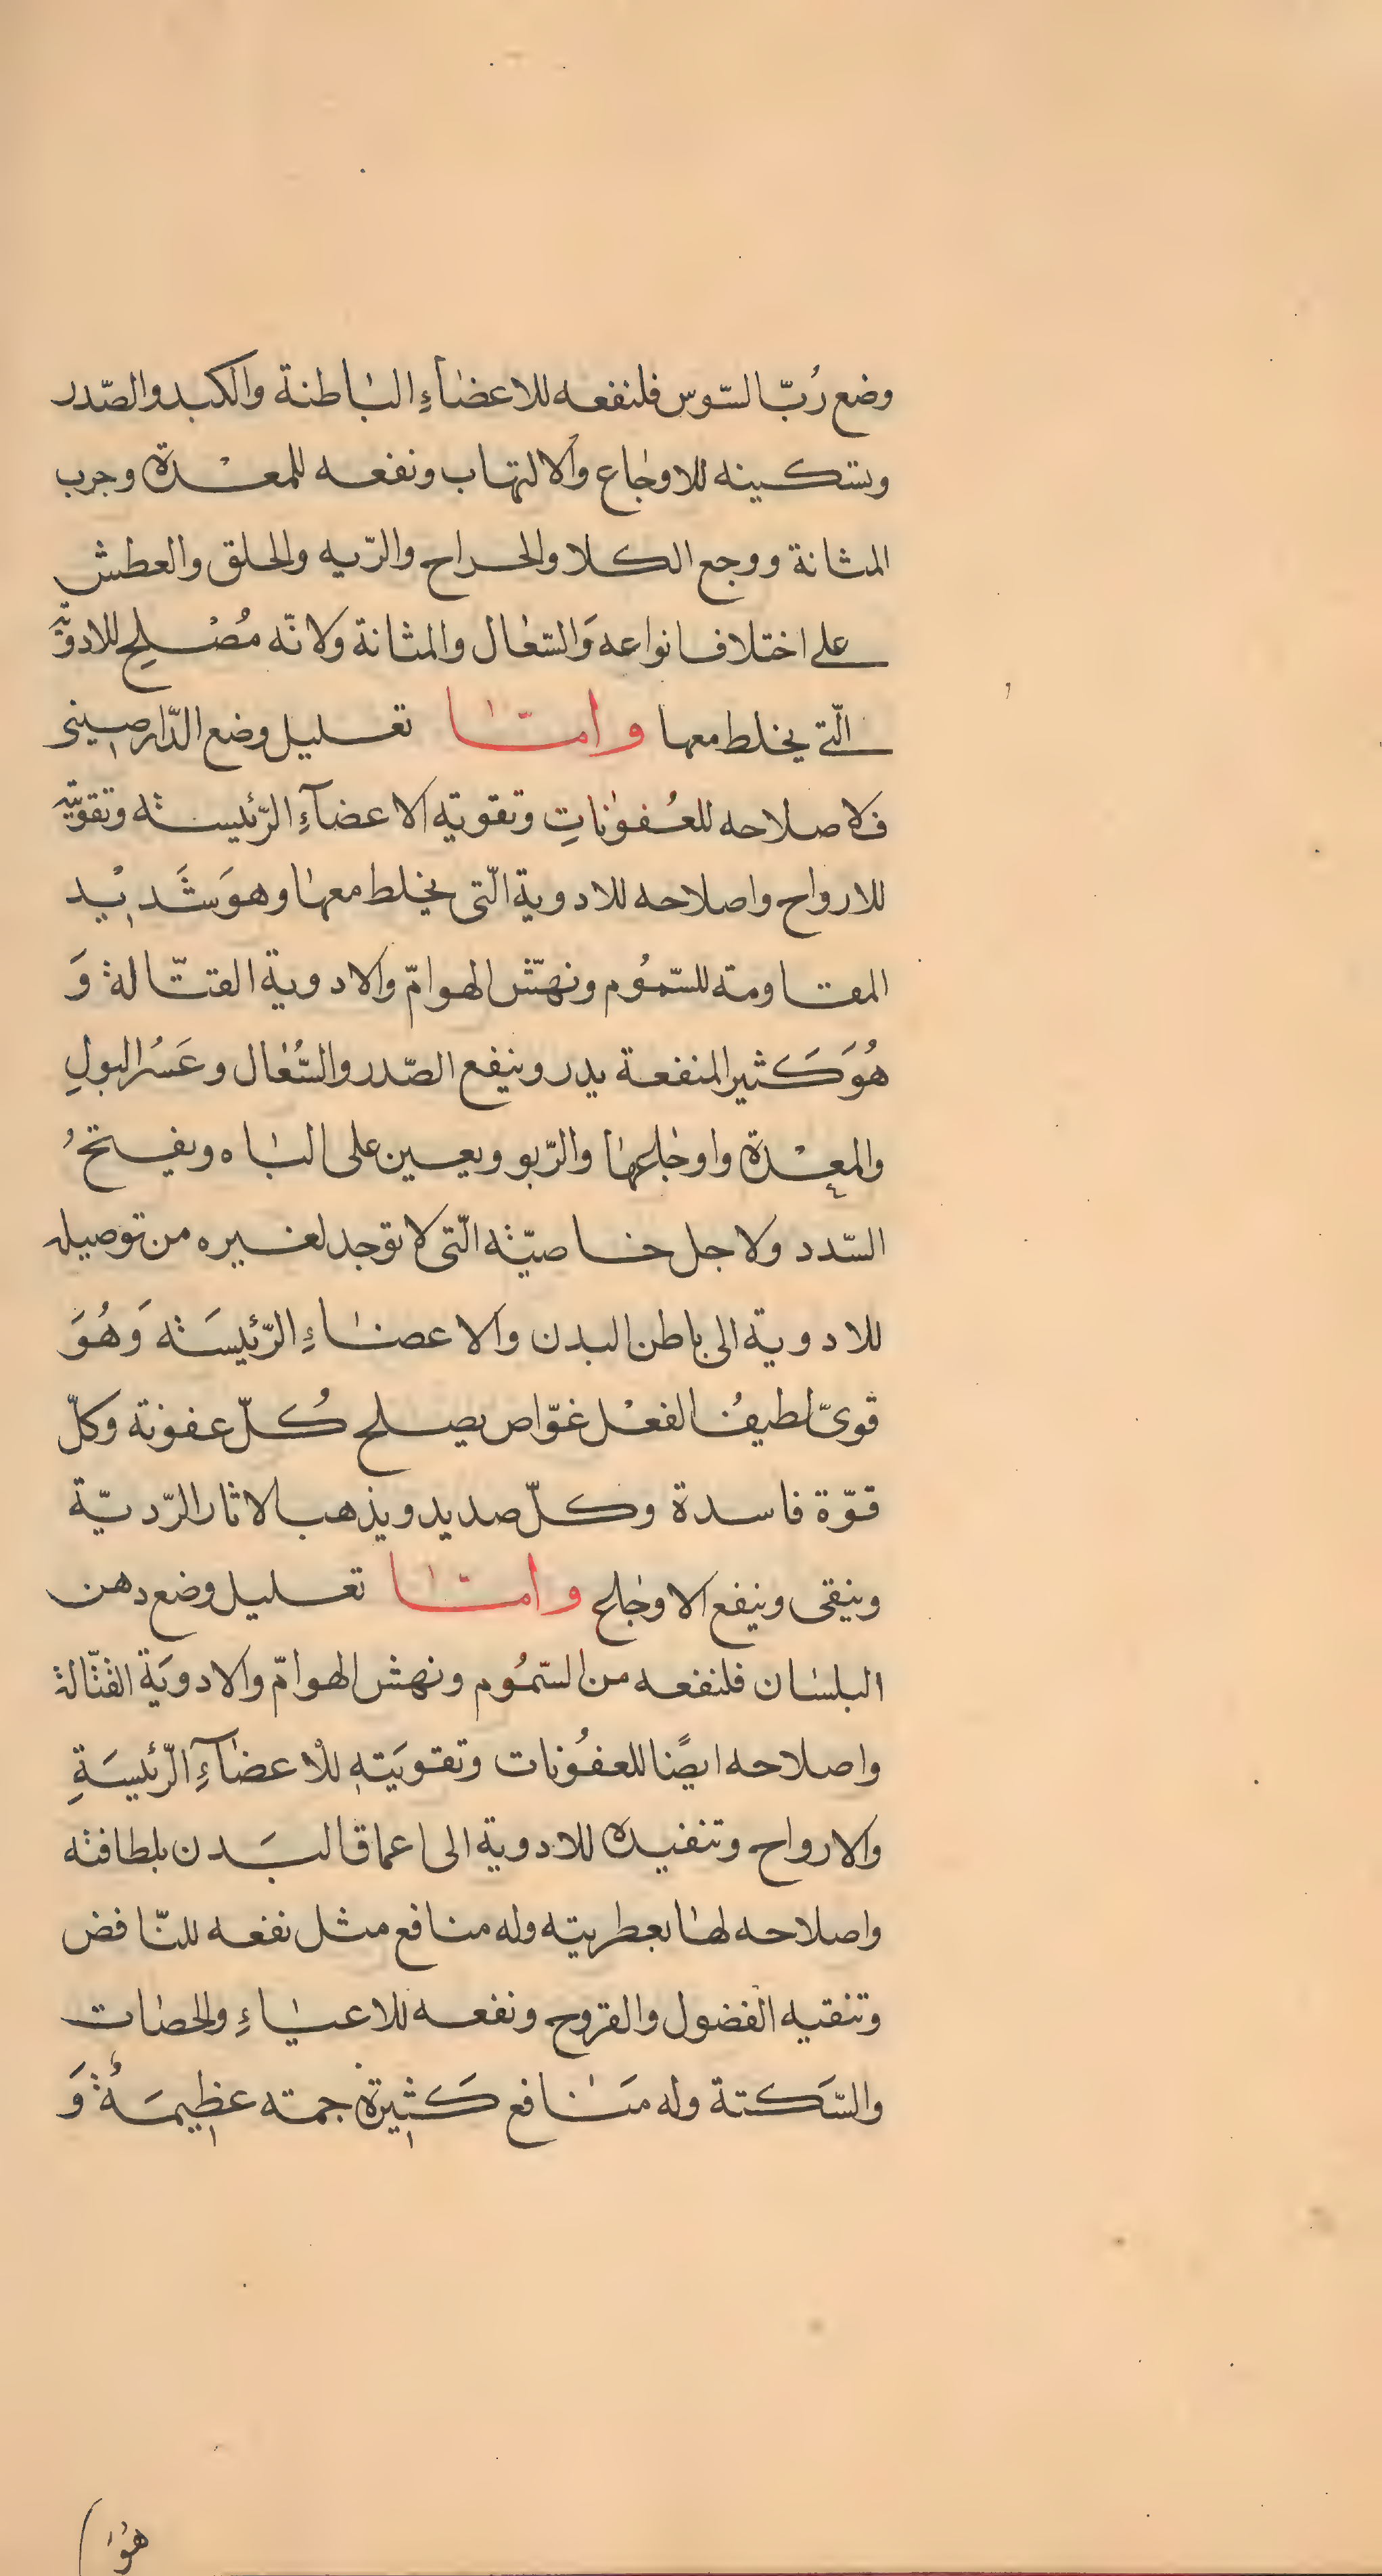 وضع رُبّ السّوس فلنفعه للاعضاءِ الباطنة والكبد والصّدر
وتسكينه للاوجاع والالتهاب ونفعه للمعدة وجرب
المثانة ووجع الكلا والجراح والرّيه والحلق والعطش
على اختلاف انواعه وَالسّعال والمثانة ولانّه مُصْلِح للادويّه
الّتى يخلط معها وامّا تعليل وضع الدّارصينى
فلاصلاحه للعُفوناتِ وتقويته الاعضآءِ الرّئيسته وتقويّه
للارواح واصلاحه للادوية الّتى يخلط معها وهوَ شَديْد
المقاومة للسّمُوم ونهّش الهوامّ والادوية القتّالة وَ
هُوَ كَثير المنفعة يدر وينفع الصّدر والسُّعال وعَسُر البولِ
والمعْدة واوجاعها والرّبو ويعين على الباه ويفتحُ
السّدد ولاجل خاصيّته الّتى لا توجد لغيره من توصيله
للادوية الى باطن البدن والاعضاءِ الرّئيسَته وَهُوَ
قوىّ لطيفُ الفعْل غوّاص يصلح كُلّ عفونة وكلّ
قوّة فاسدة وكلّ صديد ويذهب الاثار الرّديّة
وينقى وينفع الاوجاع وامّا تعليل وضع دهن
البلسان فلنفعه من السّمُوم ونهش الهوامّ والادويَة القتّالة
واصلاحه ايضًا للعفُونات وتقويَته للاعضآءِ الرّئيسَةِ
والارواح وتنفيده للادوية الى اعماق البَدن بلطافته
واصلاحه لها بعطريته وله منافع مثل نفعه للنّافض
وتنقيه الفضول والقروح ونفعه للاعياءِ والحصات
والسّكتة وله مَنافع كَثيرة جمته عظيمَةُ وَ
هُوَ